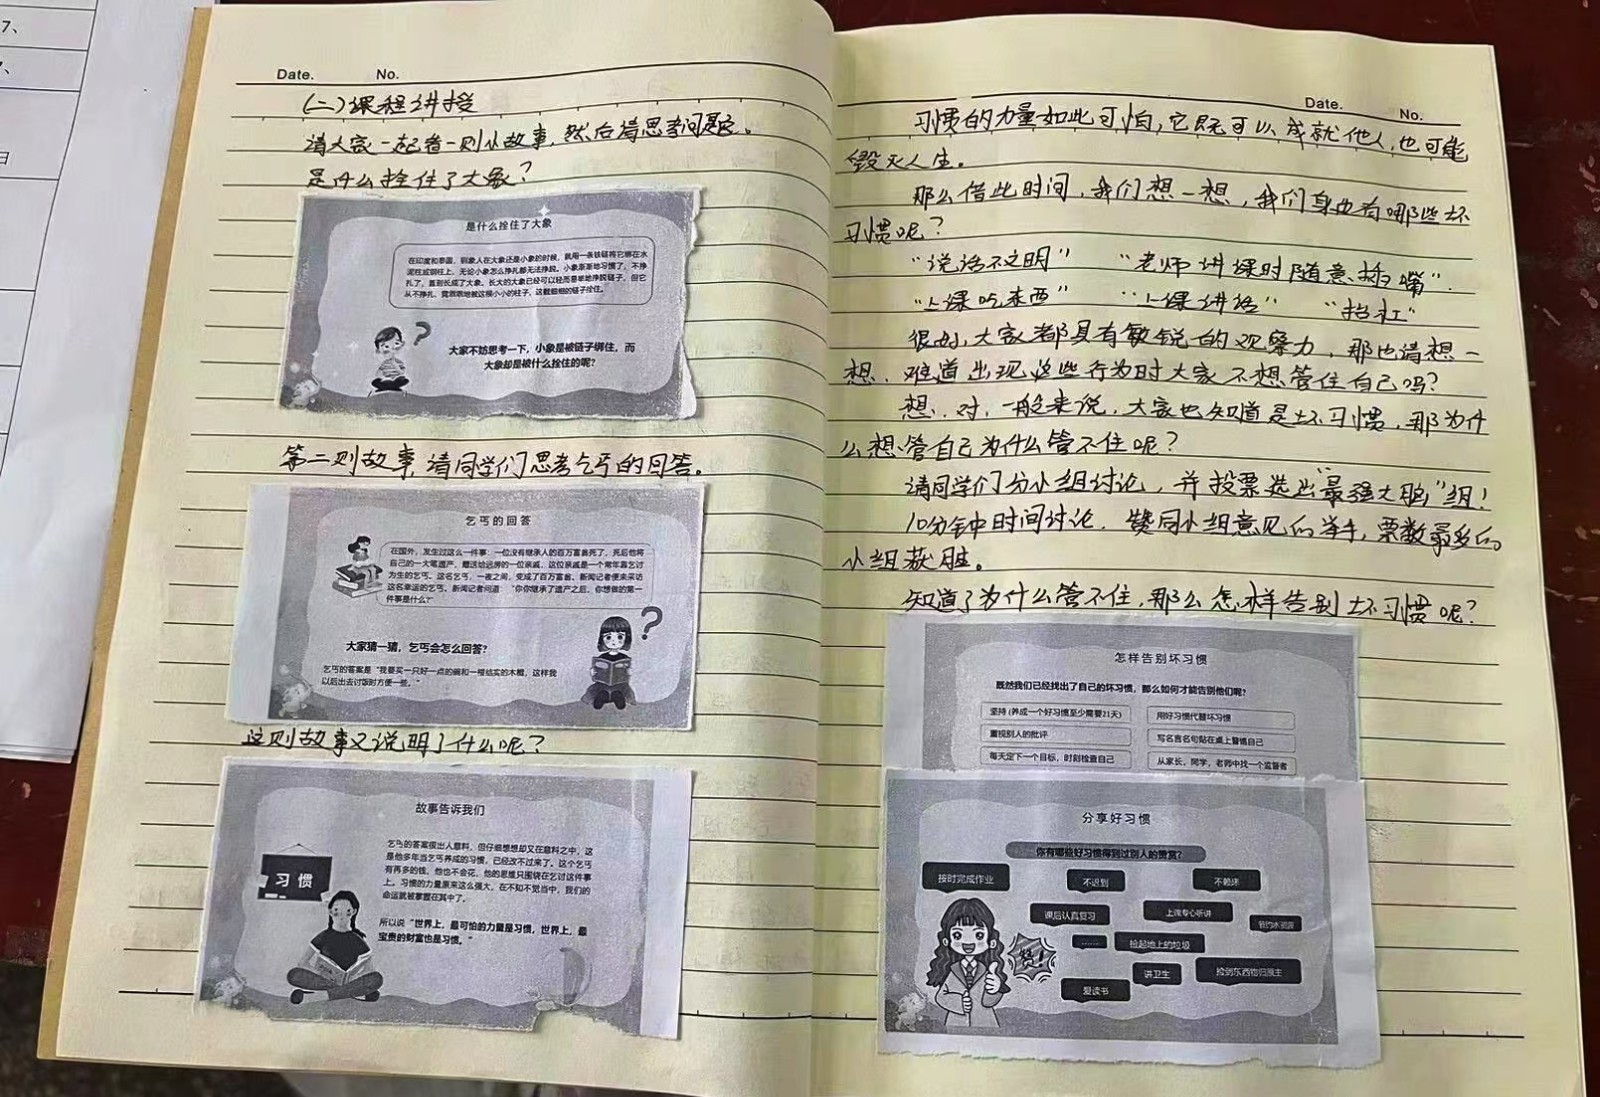 7、
Date. No.
(二)课程讲授
请大家一起看一则小故事，然后请思考问题。
是什么拴住了大象？
是什么拴住了大象
在印度和泰国，驯象人在大象还是小象的时候，就用一条铁链将它绑在水
泥柱或钢柱上，无论小象怎么挣扎都无法挣脱。小象渐渐地习惯了，不挣
扎了，直到长成了大象。长大的大象已经可以轻而易举地挣脱链子，但它
从不挣扎，竟乖乖地被这根小小的柱子、这截细细的链子拴住。
大家不妨思考一下，小象是被链子绑住，而
大象却是被什么拴住的呢？
第二则故事，请同学们思考乞丐的回答。
乞丐的回答
在国外，发生过这么一件事：一位没有继承人的百万富翁死了，死后他将
自己的一大笔遗产，赠送给远房的一位亲戚，这位亲戚是一个常年靠乞讨
为生的乞丐。这名乞丐，一夜之间，变成了百万富翁。新闻记者便来采访
这名幸运的乞丐。新闻记者问道：“你继承了遗产之后，你想做的第一
件事是什么？”
大家猜一猜，乞丐会怎么回答？
乞丐的答案是“我要买一只好一点的碗和一根结实的木棍，这样我
以后出去讨饭时方便一些。”
这则故事又说明了什么呢？
故事告诉我们
习惯
乞丐的答案很出人意料，但仔细想想却又在意料之中，这
是他多年当乞丐养成的习惯，已经改不过来了。这个乞丐
有再多的钱，他也不会花，他的思维只围绕在乞讨这件事
上。习惯的力量原来这么强大，在不知不觉当中，我们的
命运就被掌握在其中了。
所以说“世界上，最可怕的力量是习惯，世界上，最
宝贵的财富也是习惯。”
Date. No.
习惯的力量如此可怕，它既可以成就他人，也可能
毁灭人生。
那么借此时间，我们想一想，我们身边有哪些坏
习惯呢？
“说话不文明” “老师讲课时随意插嘴”
“上课吃东西” “上课讲话” “抬杠”
很好，大家都具有敏锐的观察力，那也请想一
想，难道出现这些行为时大家不想管住自己吗？
想，对，一般来说，大家也知道是坏习惯，那为什
么想管自己为什么管不住呢？
请同学们分小组讨论，并投票选出“最强大脑”组！
10分钟时间讨论，赞同小组意见的举手，票数最多的
小组获胜。
知道了为什么管不住，那么怎样告别坏习惯呢？
怎样告别坏习惯
既然我们已经找出了自己的坏习惯，那么如何才能告别他们呢？
坚持(养成一个好习惯至少需要21天) 用好习惯代替坏习惯
重视别人的批评 写名言名句贴在桌上警惕自己
每天定下一个目标，时刻检查自己 从家长、同学、老师中找一个监督者
分享好习惯
你有哪些好习惯得到过别人的赞赏？
按时完成作业 不迟到 不赖床
课后认真复习 上课专心听讲 节约水资源
…… 捡起地上的垃圾
赞！ 讲卫生 捡到东西物归原主
爱读书